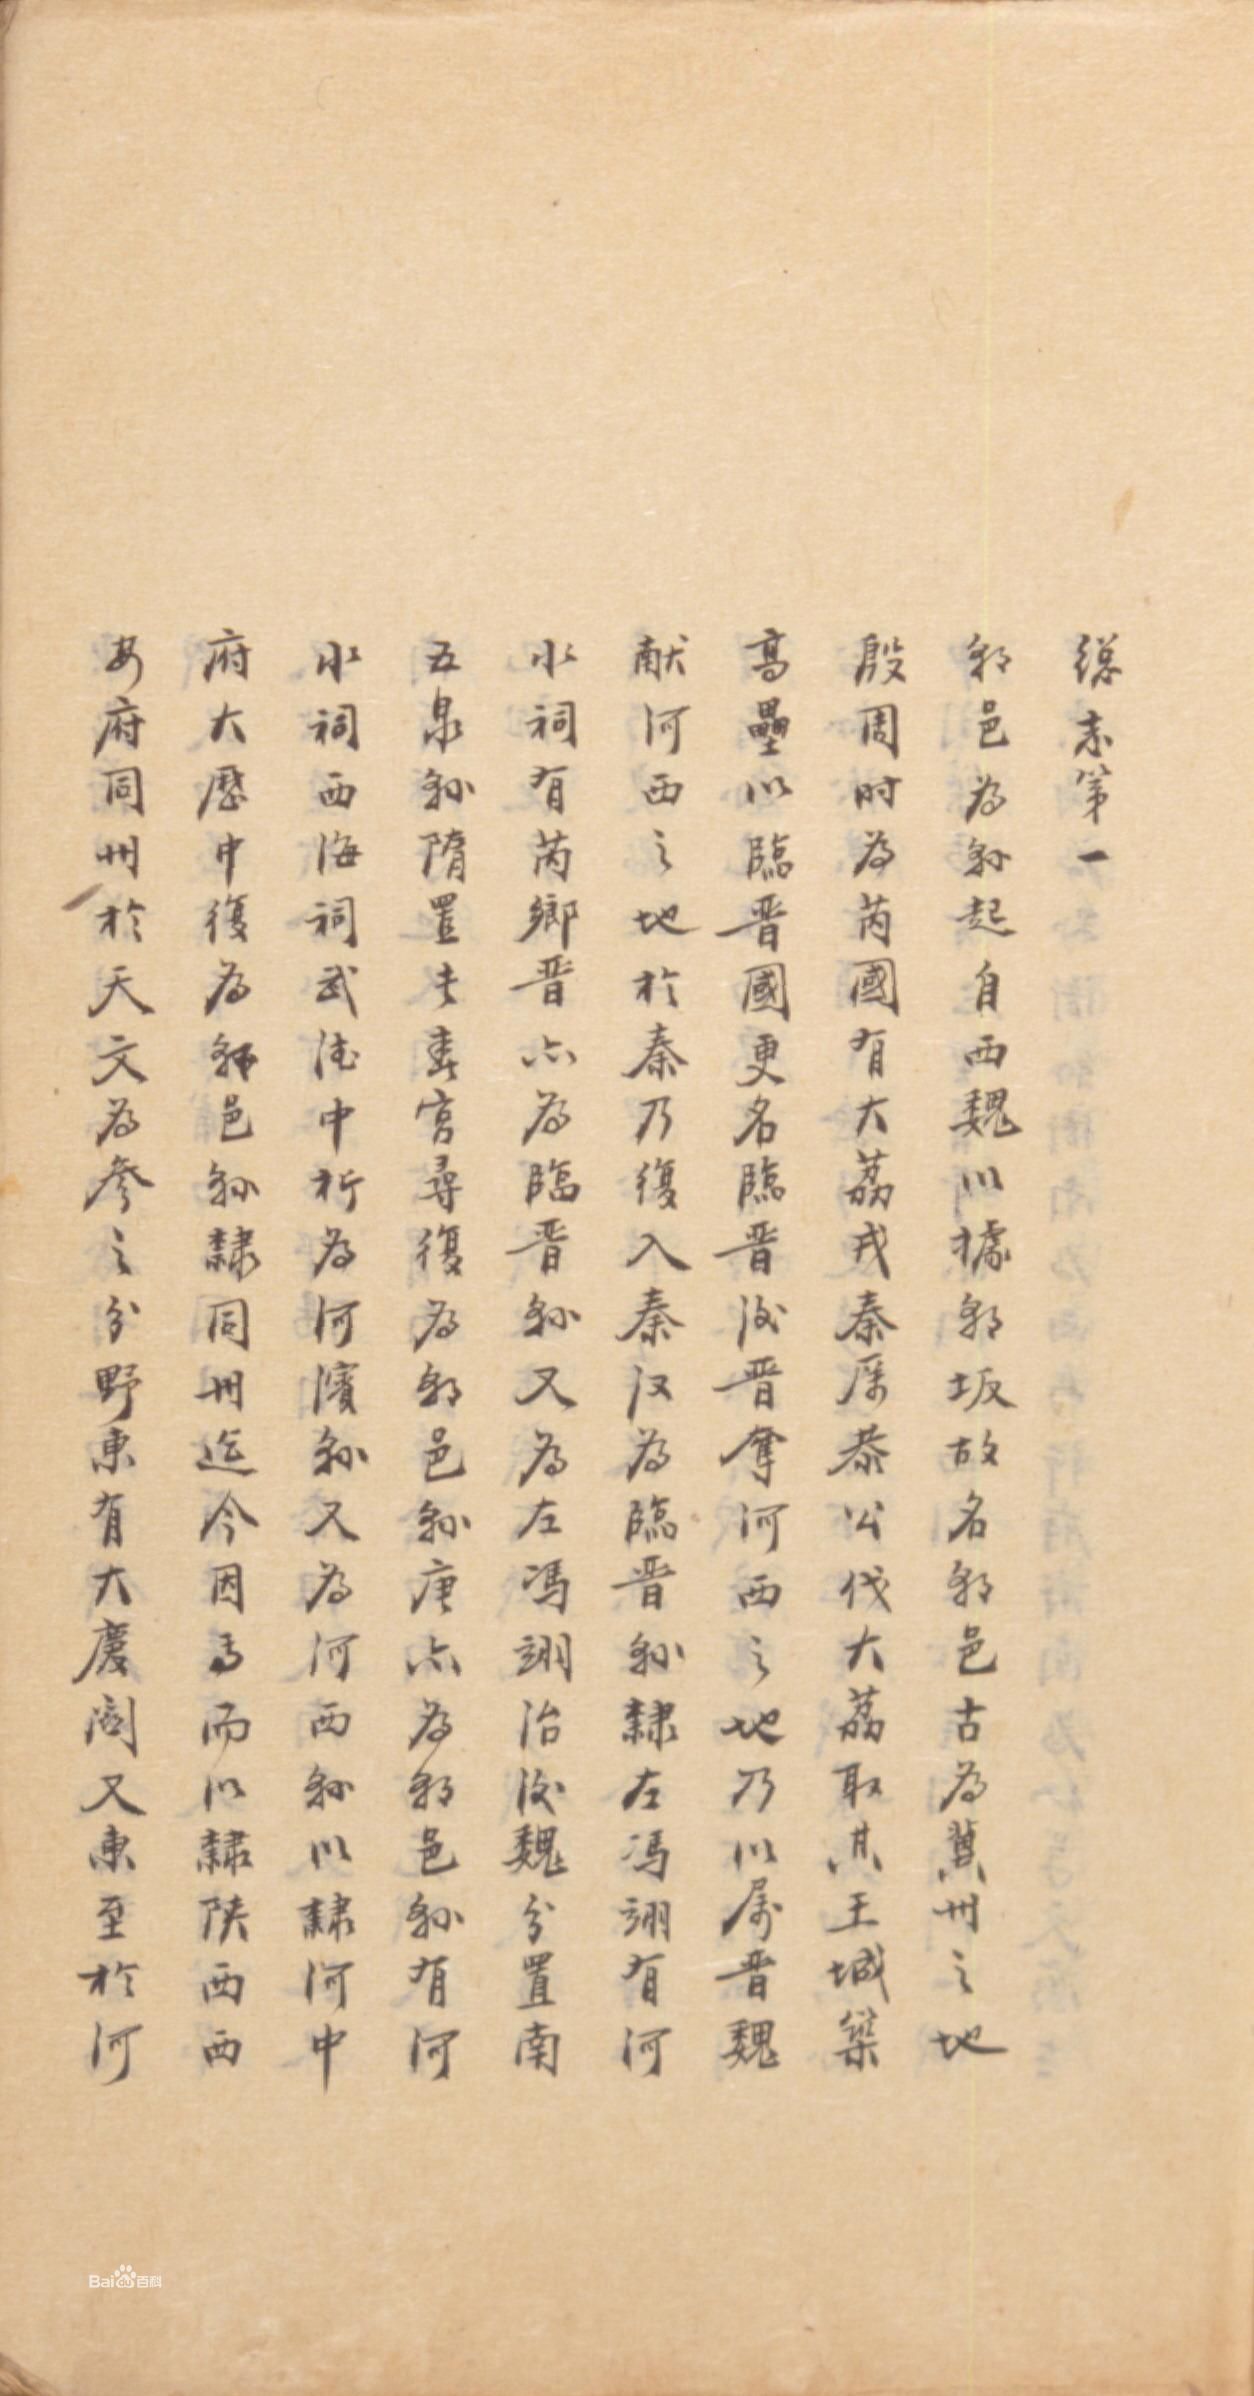 總志第一
朝邑為縣起自西魏以據朝坂故名朝邑古為冀州之地
殷周時為芮國有大荔戎秦厲恭公伐大荔取其王城築
高壘以臨晋國更名臨晋後晋奪河西之地乃以屬晋魏
献河西之地於秦乃復入秦汉為臨晋縣隸左馮翊有河
水祠有芮鄉晋亦為臨晋縣又為左馮翊治後魏分置南
五泉縣隋置長春宮尋復為朝邑縣唐亦為朝邑縣有河
水祠西海祠武德中析為河濱縣又為河西縣以隸河中
府大歷中復為朝邑縣隸同州迄今因焉而以隸陕西西
安府同州於天文為參之分野東有大慶関又東至於河
Bai du 百科